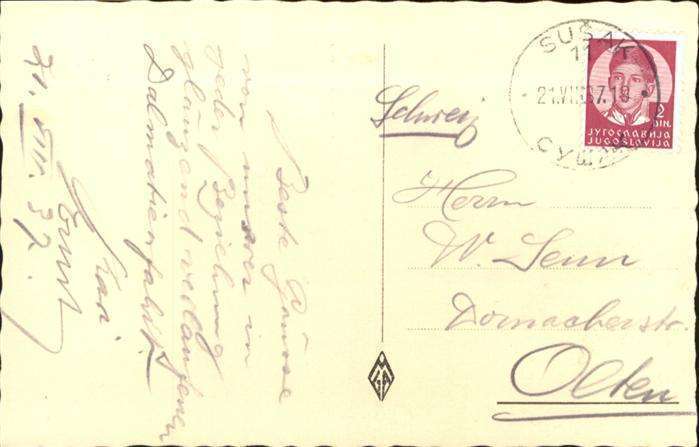 Beste Grüsse
von unserer in
jeder Beziehung
glänzend verlaufenen
Dalmatienfahrt.
Ernst
21. VIII. 37.
SUŠAK
21.VIII.37.18
СУШАК
2
DIN.
ЈУГОСЛАВИЈА
JUGOSLAVIJA
Schweiz
Herrn
W. Senn
Dornacherstr.
Olten